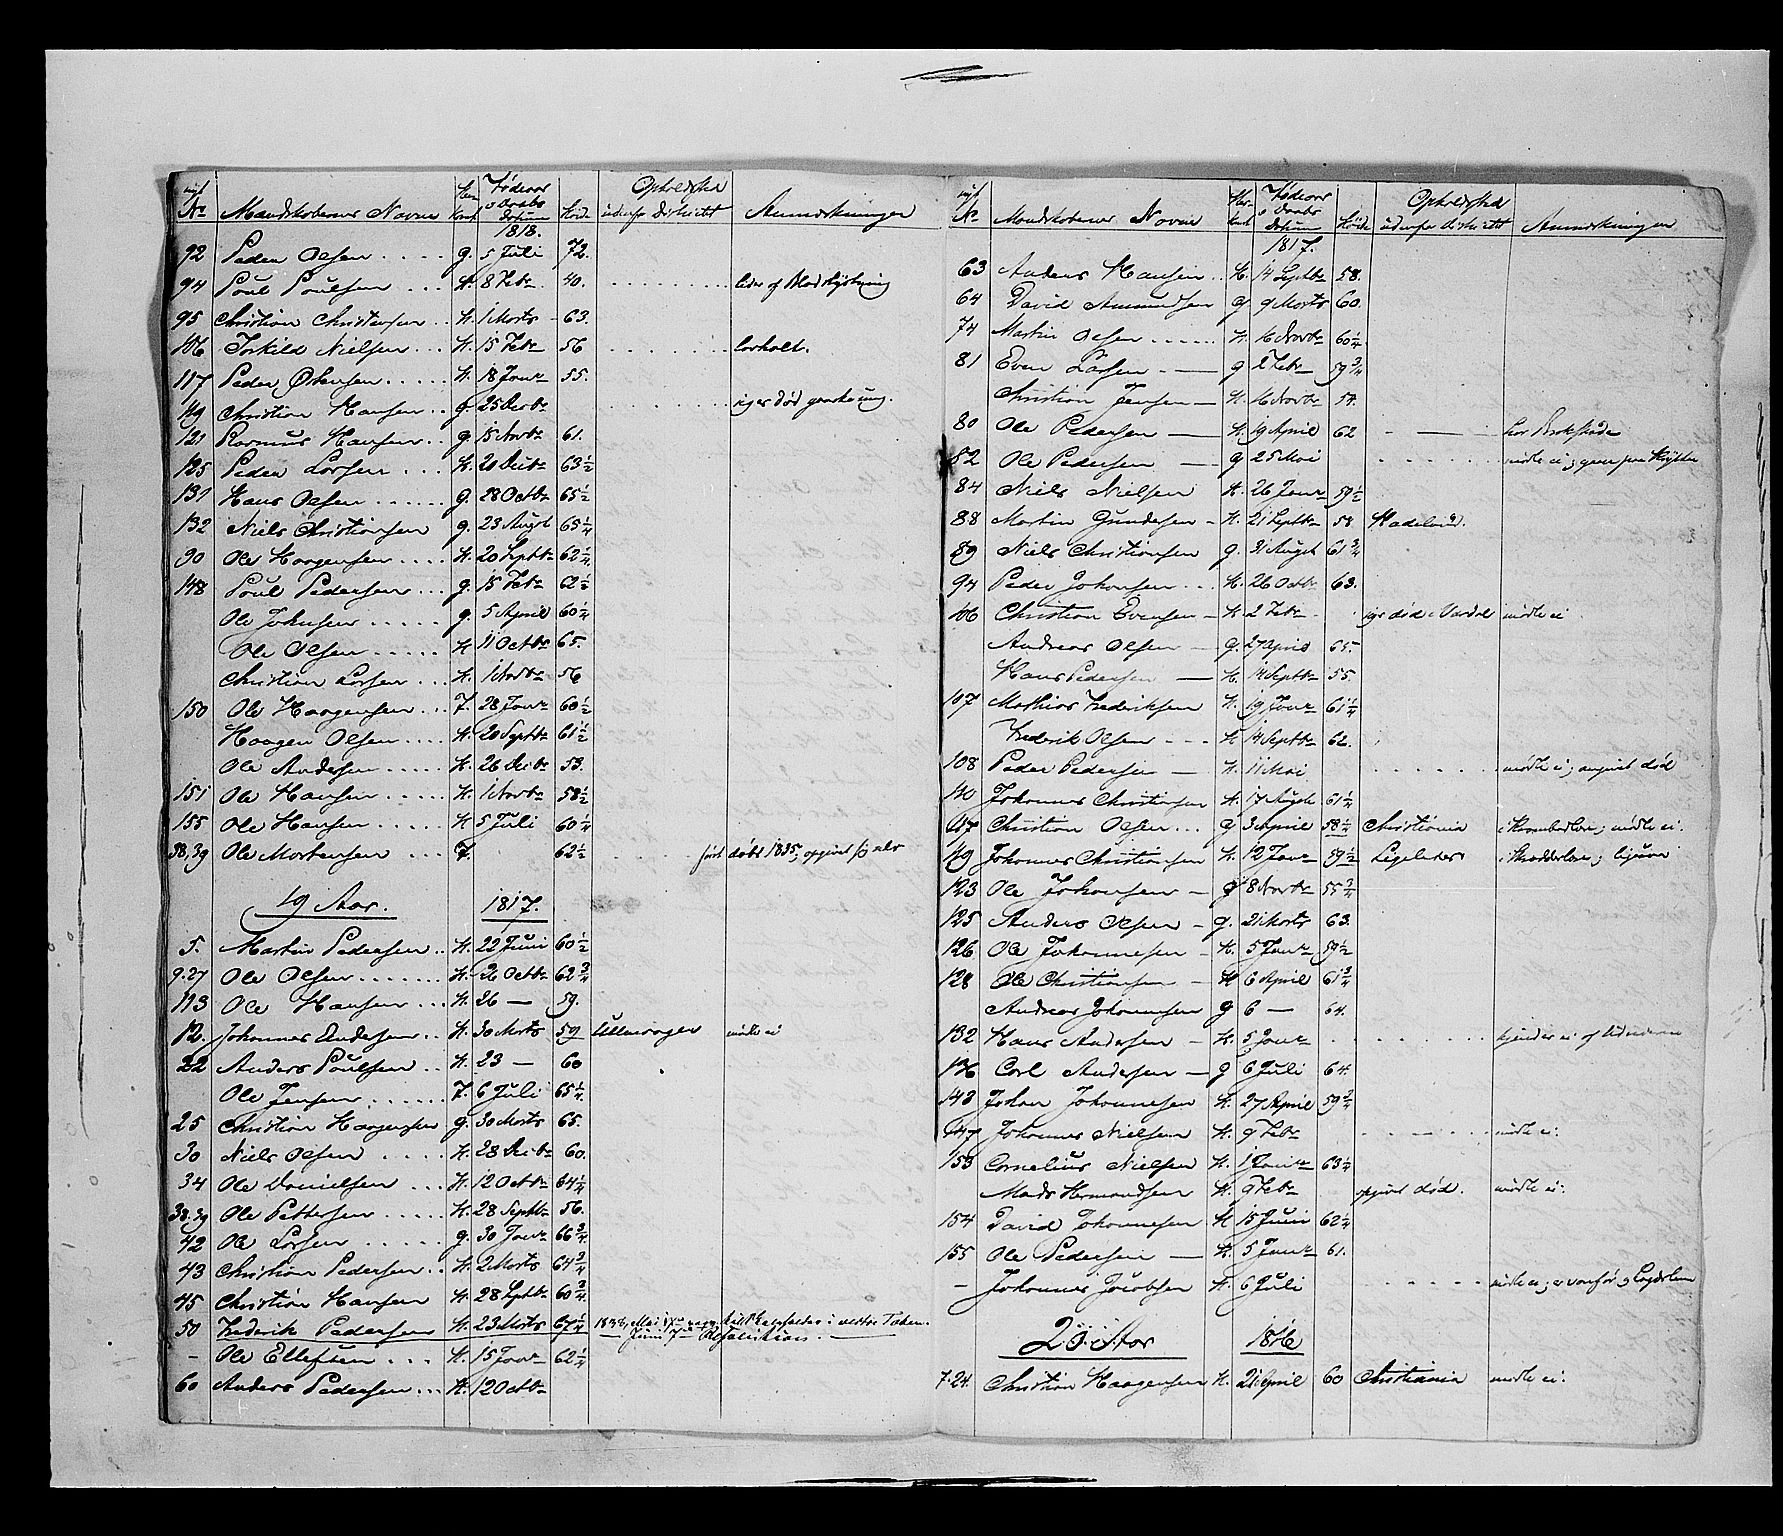 No Mandskabernes Navne Fødeaar o Daabs Datum Høide Opholdsted udenfor Districtet Anmærkninger
1818.
92 Peder Olsen g. 5 Juli 72.
94 Poul Poulsen H. 8 Febr 40. lider af Blodstyrtning
95 Christian Christensen H. 1 Marts 63.
106 Torkild Nielsen H. 15 Febr 56
117 Peder H. 18 Janr 55.
119 Christian Hansen g. 25 Decbr
121 Rasmus Hansen g. 15 Novbr 61.
125 Peder Larsen H. 20 Decbr 63½
131 Hans Olsen g. 28 Octbr 65½
132 Niels Christiansen g. 23 Augst 65¼
90 Ole Haagensen H. 20 Septbr 62½
148 Poul Pedersen g. 15 Febr 62½
Ole Johnsen g. 5 April 60¼
Ole Olsen H 11 Octbr 65.
Christian Larsen H. 1 Novbr 56
150 Ole Haagensen F. 28 Janr 60½
Haagen Olsen H. 20 Septbr 61½
Ole Andersen H. 26 Decbr 53.
151 Ole Hansen H. 1 Novbr 58½
155 Ole Hansen H 5 Juli 60¼
38,39 Ole Mortensen F. 62½ født døbt 1835, opgivet
19 Aar. 1817.
5. Martin Pedersen H. 22 Juni 60½
9.27 Ole Olsen H. 26 Octbr 62¾
113 Ole Hansen H. 26 — 59.
12. Johannes Andersen H. 30 Marts 59 Ullensager mødte ei
22 Anders Poulsen H. 23 — 60
Ole Jensen F. 6 Juli 65¼
25 Christian Haagensen g. 30 Marts 65.
30 Niels Olsen H. 28 Decbr 60.
34 Ole Danielsen H. 12 Octbr 64¼
38.39 Ole Pettersen H. 28 Septbr 56.
42 Ole Larsen g. 30 Janr 66¾
43 Christian Pedersen H. 2 Marts 64¾
45 Christian Hansen H. 28 Septbr 60¾
50 Frederik Pedersen H. 23 Marts 67¼ 1838, Mai
— Ole Ellefsen H. 15 Janr 62¼
60 Anders Pedersen H. 12 Octbr
No Mandskabernes Navne Fødeaar o Daabs Datum Høide Opholdsted udenfor Districtet Anmærkninger
1817.
63 Anders Hansen H. 14 Septbr 58.
64 David Amundsen g 9 Marts 60.
74 Martin Olsen H. 16 Novbr 60¼
81 Even Larsen g 2 Febr 59¾
Christian Jensen H. 16 Novbr 54.
80 Ole Pedersen H. 19 April 62 har Brokskade
82 Ole Pedersen g 25 Mai mødte ei;
84 Niels Nielsen H. 26 Janr 59½
88 Martin Gundersen H. 21 Septbr 58 Hadeland.
89 Niels Christiansen g. 31 Augst 61¾
94 Peder Johansen H. 26 Octbr 63.
106 Christian Evensen H 2 Febr død i Vardal mødte ei
Andreas Olsen g. 27 April 65.
Hans Pedersen H. 14 Septbr 55.
107 Mathias Frederiksen H. 19 Janr 61¼
Frederik Olsen H 14 Septbr 62.
108 Peder Pedersen H. 11 Mai mødte ei; angivet død
110 Johannes Christiansen H. 17 Augst 61½
117 Christian Olsen g 3 April 58¼ Christiania mødte ei.
119 Johannes Christiansen H 12 Janr 59½ Ligeledes i Skrædderlære; ligesom
123 Ole Johansen g 8 Novbr 55¾
125 Anders Olsen g. 21 Marts 63.
126 Ole Johannesen H. 5 Janr 59½
128 Ole Christiansen H 6 April 61¾
Andreas Johannesen g 6 — 64.
132 Hans Andersen H. 5 Janr kjendes ei af Lúdenderne
136 Carl Andersen g 6 Juli 64.
143 Johan Johannesen H. 27 April 59¾
147 Johannes Nielsen H. 9 Febr mødte ei.
153 Cornelius Nielsen H. 1 Janr 63¼
Mads Hermandsen H. 9 Febr opgivet død. mødte ei.
154 David Johannesen H 15 Juni 62¼
155 Ole Pedersen H. 5 Janr 61.
— Johannes Jacobsen H. 6 Juli mødte ei; er vanfør og Lægdslem
20. Aar 1816
7.24. Christian Haagensen H. 21 April 60 Christiania mødte ei.